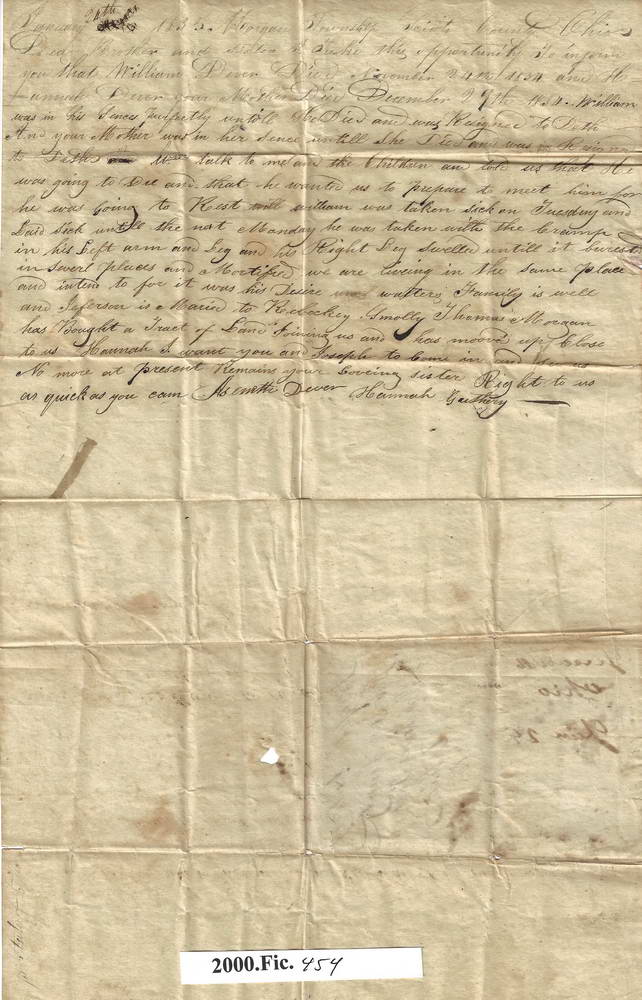 January 24th 1835. Morgan Township Scioto County Ohio
Dear Brother and sister I take this opportunity to inform
you that William Dever Died November 24th 1834 and H
annah Dever your Mother Died December 29th 1834. William
was in his Sences perfectly untill He Died and was Resigned to Deth
And your Mother was in her Sence untill She Died and was
to Deth talk to me and the Children and told us that He
was going to Die and that he wanted us to prepare to meet him for
he was Going to Rest william was taken sick on Tuesday and
Laid Sick untill the next Monday he was taken with the Cramp
in his Left arm and Leg and his Right Leg swelled untill it burest
in severl places and Mortified we are liveing in the same place
and intend to for it was his Desire walters Family is well
and Jeferson is Maried to Smolly Thomas Morgan
has Bought a Tract of Land Joining us and has mooved up Close
to us Hannah I want you and Joseph to Come in and
No more at present Remains your Loveing sister Right to us
as quick as you cam Dever Hannah
Ohio
Jan 24
2000.Fic. 454